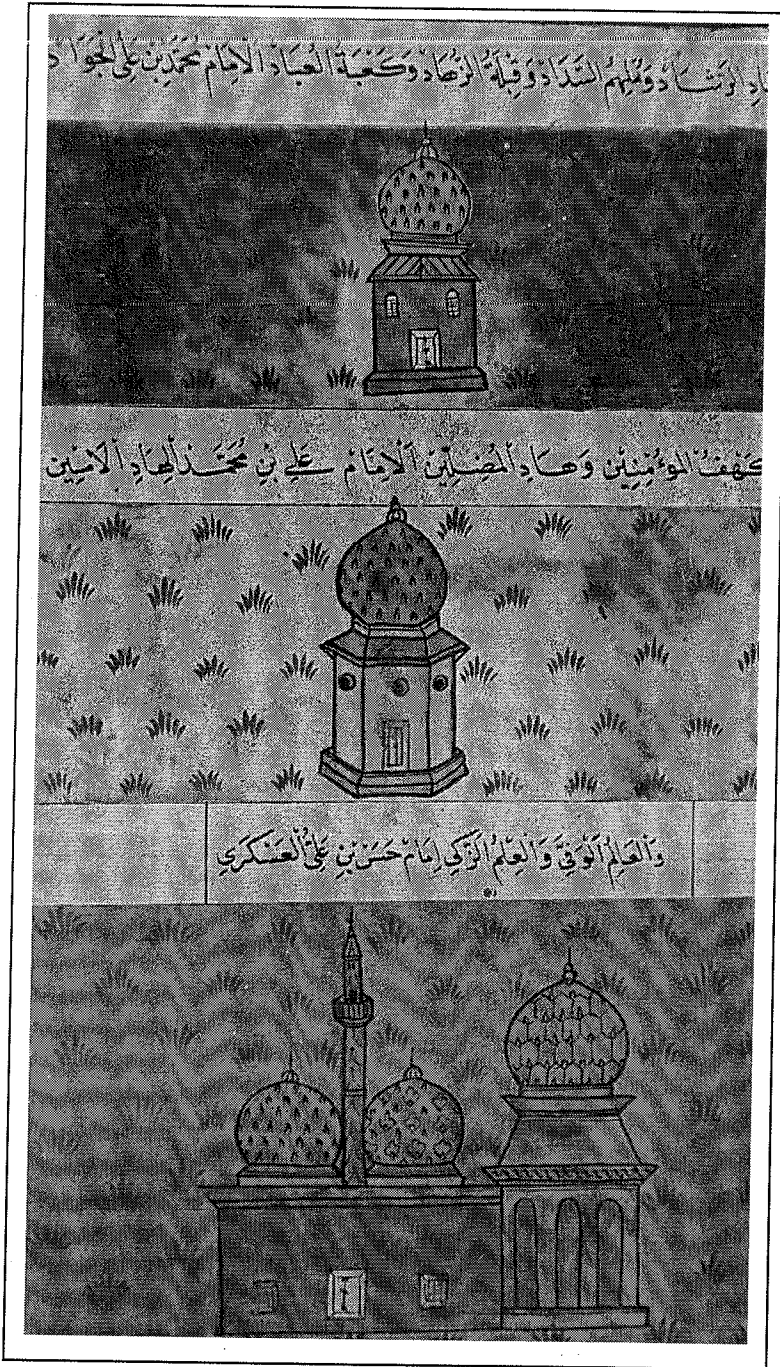 ـادِ الرَّشَادْ وَمُلْهِمُ السَّدَادْ وَقِبْلَةُ الزُّهَادْ وَكَعْبَةُ الْعُبَادْ الْاِمَامْ مُحَمَّدِ بْنِ عَلِّى الْجَوَادْ
كَهْفُ الْمُوءْمِنِيْن وَهَادِ الْمُضِلِّيْن اَلْاِمَام عَلِى بْنِ مُحَمَّدْ الْهَادِ الْاَمِيْن
وَالْعَالِمُ الْوَفِىَّ وَالْعِلْمُ الزَّكِى اِمَامْ حَسَنْ بْنِ عَلِىُّ الْعَسْكَرِي